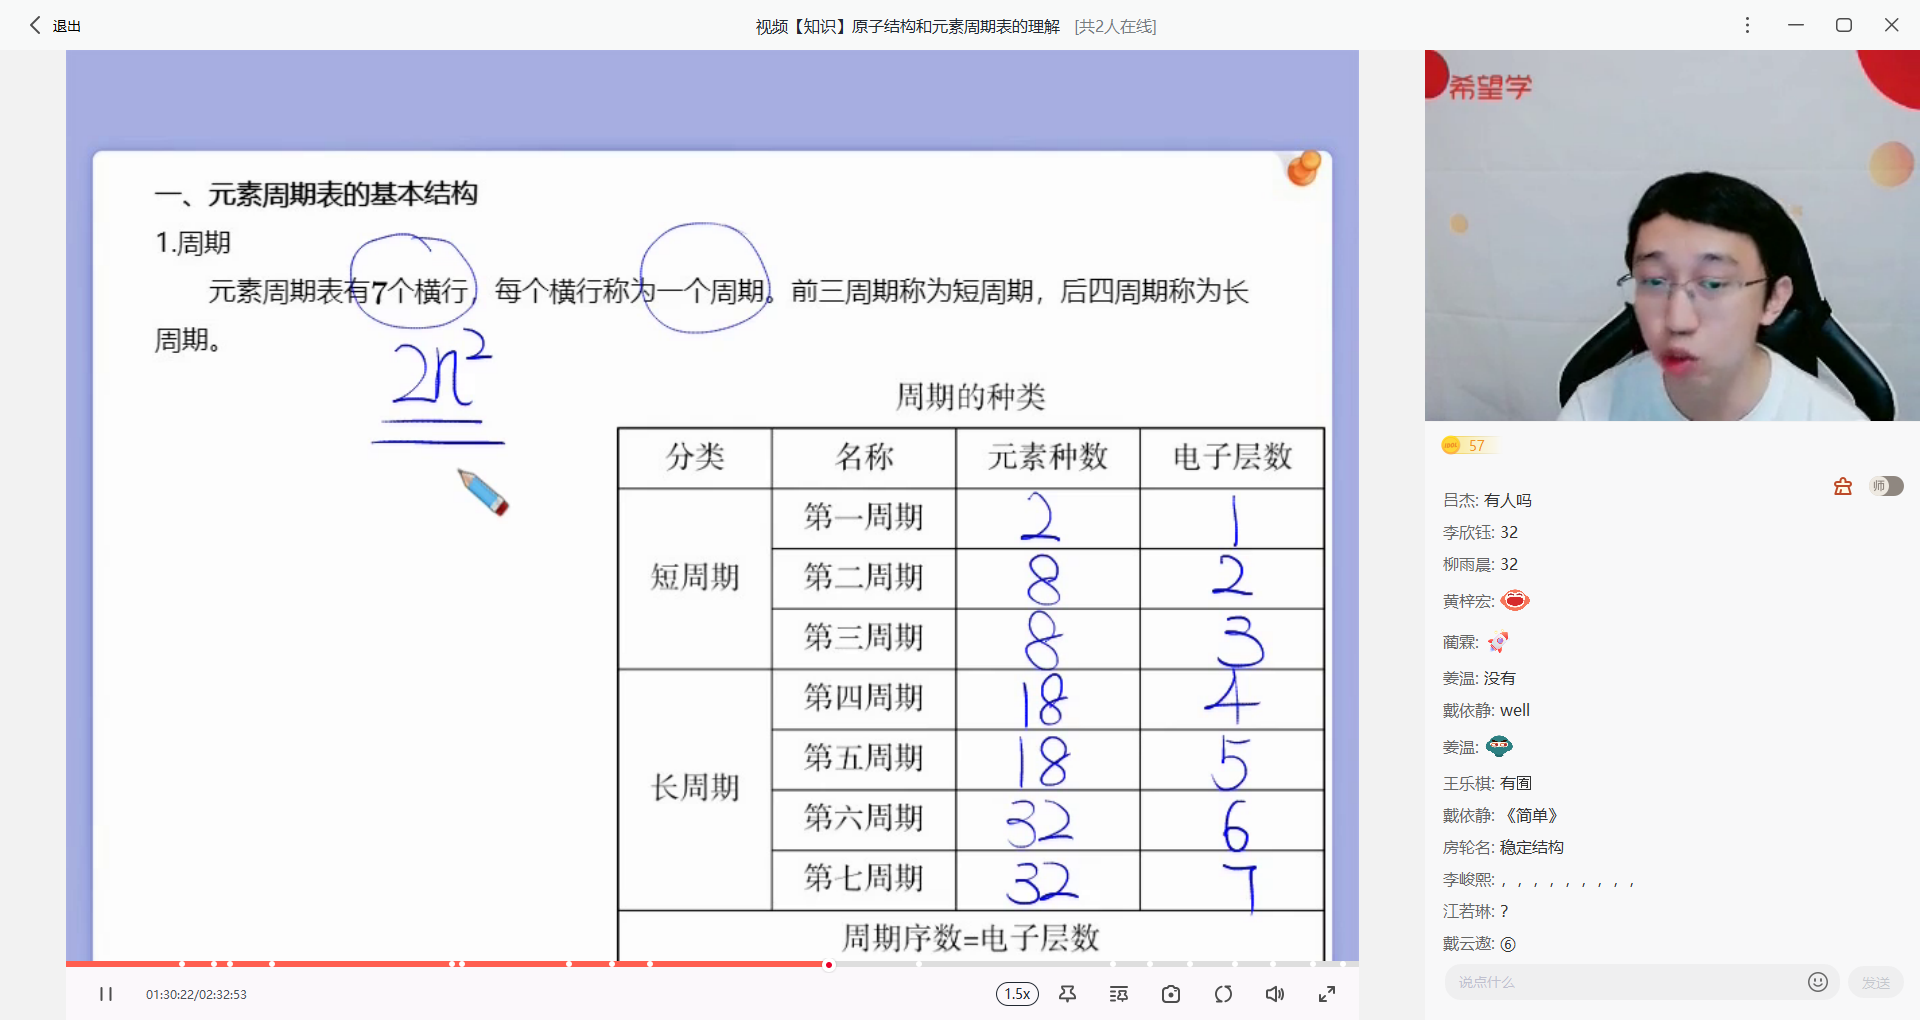 退出
视频【知识】原子结构和元素周期表的理解 [共2人在线]
一、元素周期表的基本结构
1.周期
元素周期表有7个横行，每个横行称为一个周期。前三周期称为短周期，后四周期称为长
周期。
2n²
周期的种类
分类 名称 元素种数 电子层数
短周期
第一周期 2 1
第二周期 8 2
第三周期 8 3
长周期
第四周期 18 4
第五周期 18 5
第六周期 32 6
第七周期 32 7
周期序数=电子层数
01:30:22/02:32:53
1.5x
希望学
57
师
吕杰: 有人吗
李欣钰: 32
柳雨晨: 32
黄梓宏:
蔺霖:
姜温: 没有
戴依静: well
姜温:
王乐棋: 有囿
戴依静: 《简单》
房轮名: 稳定结构
李峻熙: , , , , , , , , ,
江若琳: ?
戴云遨: ⑥
说点什么
发送